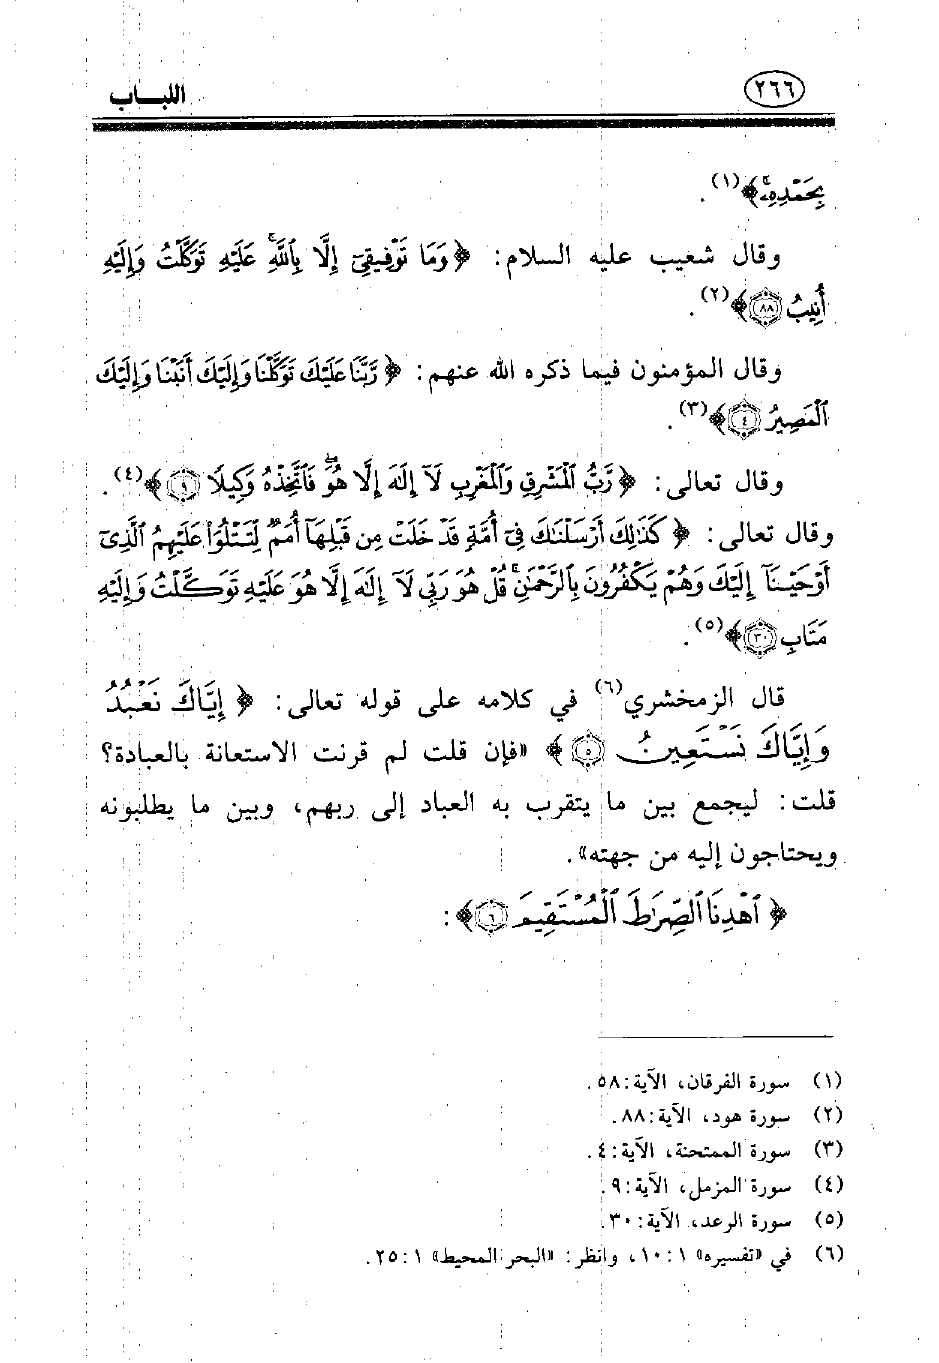 ٢٦٦
اللباب
بِحَمْدِهِۦ﴾(١).
وقال شعيب عليه السلام: ﴿وَمَا تَوْفِيقِىٓ إِلَّا بِٱللَّهِ ۚ عَلَيْهِ تَوَكَّلْتُ وَإِلَيْهِ
أُنِيبُ ٨٨﴾(٢).
وقال المؤمنون فيما ذكره الله عنهم: ﴿رَّبَّنَا عَلَيْكَ تَوَكَّلْنَا وَإِلَيْكَ أَنَبْنَا وَإِلَيْكَ
ٱلْمَصِيرُ ٤﴾(٣).
وقال تعالى: ﴿رَّبُّ ٱلْمَشْرِقِ وَٱلْمَغْرِبِ لَآ إِلَٰهَ إِلَّا هُوَ فَٱتَّخِذْهُ وَكِيلًا ٩﴾(٤).
وقال تعالى: ﴿كَذَٰلِكَ أَرْسَلْنَٰكَ فِىٓ أُمَّةٍ قَدْ خَلَتْ مِن قَبْلِهَآ أُمَمٌ لِّتَتْلُوَا۟ عَلَيْهِمُ ٱلَّذِىٓ
أَوْحَيْنَآ إِلَيْكَ وَهُمْ يَكْفُرُونَ بِٱلرَّحْمَٰنِ ۚ قُلْ هُوَ رَبِّى لَآ إِلَٰهَ إِلَّا هُوَ عَلَيْهِ تَوَكَّلْتُ وَإِلَيْهِ
مَتَابِ ٣٠﴾(٥).
قال الزمخشري(٦) في كلامه على قوله تعالى: ﴿إِيَّاكَ نَعْبُدُ
وَإِيَّاكَ نَسْتَعِينُ ٥﴾ «فإن قلت لم قرنت الاستعانة بالعبادة؟
قلت: ليجمع بين ما يتقرب به العباد إلى ربهم، وبين ما يطلبونه
ويحتاجون إليه من جهته».
﴿ٱهْدِنَا ٱلصِّرَٰطَ ٱلْمُسْتَقِيمَ ٦﴾:
(١) سورة الفرقان، الآية: ٥٨.
(٢) سورة هود، الآية: ٨٨.
(٣) سورة الممتحنة، الآية: ٤.
(٤) سورة المزمل، الآية: ٩.
(٥) سورة الرعد، الآية: ٣٠.
(٦) في «تفسيره» ١: ١٠، وانظر: «البحر المحيط» ١: ٢٥.